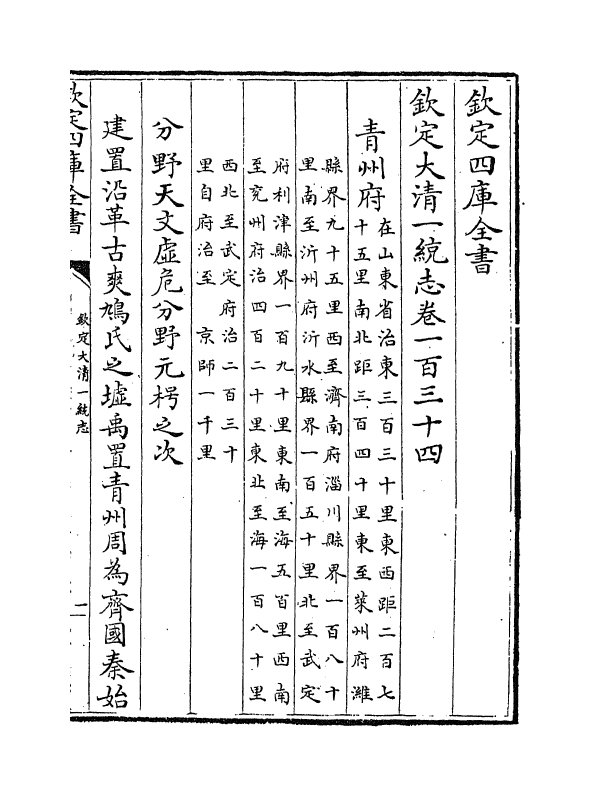 欽定四庫全書
欽定大清一統志卷一百三十四
青州府
在山東省治東三百三十里東西距二百七
十五里南北距三百四十里東至萊州府濰
縣界九十五里西至濟南府淄川縣界一百八十
里南至沂州府沂水縣界一百五十里北至武定
府利津縣界一百九十里東南至海五百里西南
至兖州府治四百二十里東北至海一百八十里
西北至武定府治二百三十
里自府治至 京師一千里
分野天文虛危分野元枵之次
建置沿革古爽鳩氏之墟禹置青州周為齊國秦始
欽定四庫全書
欽定大清一統志
二